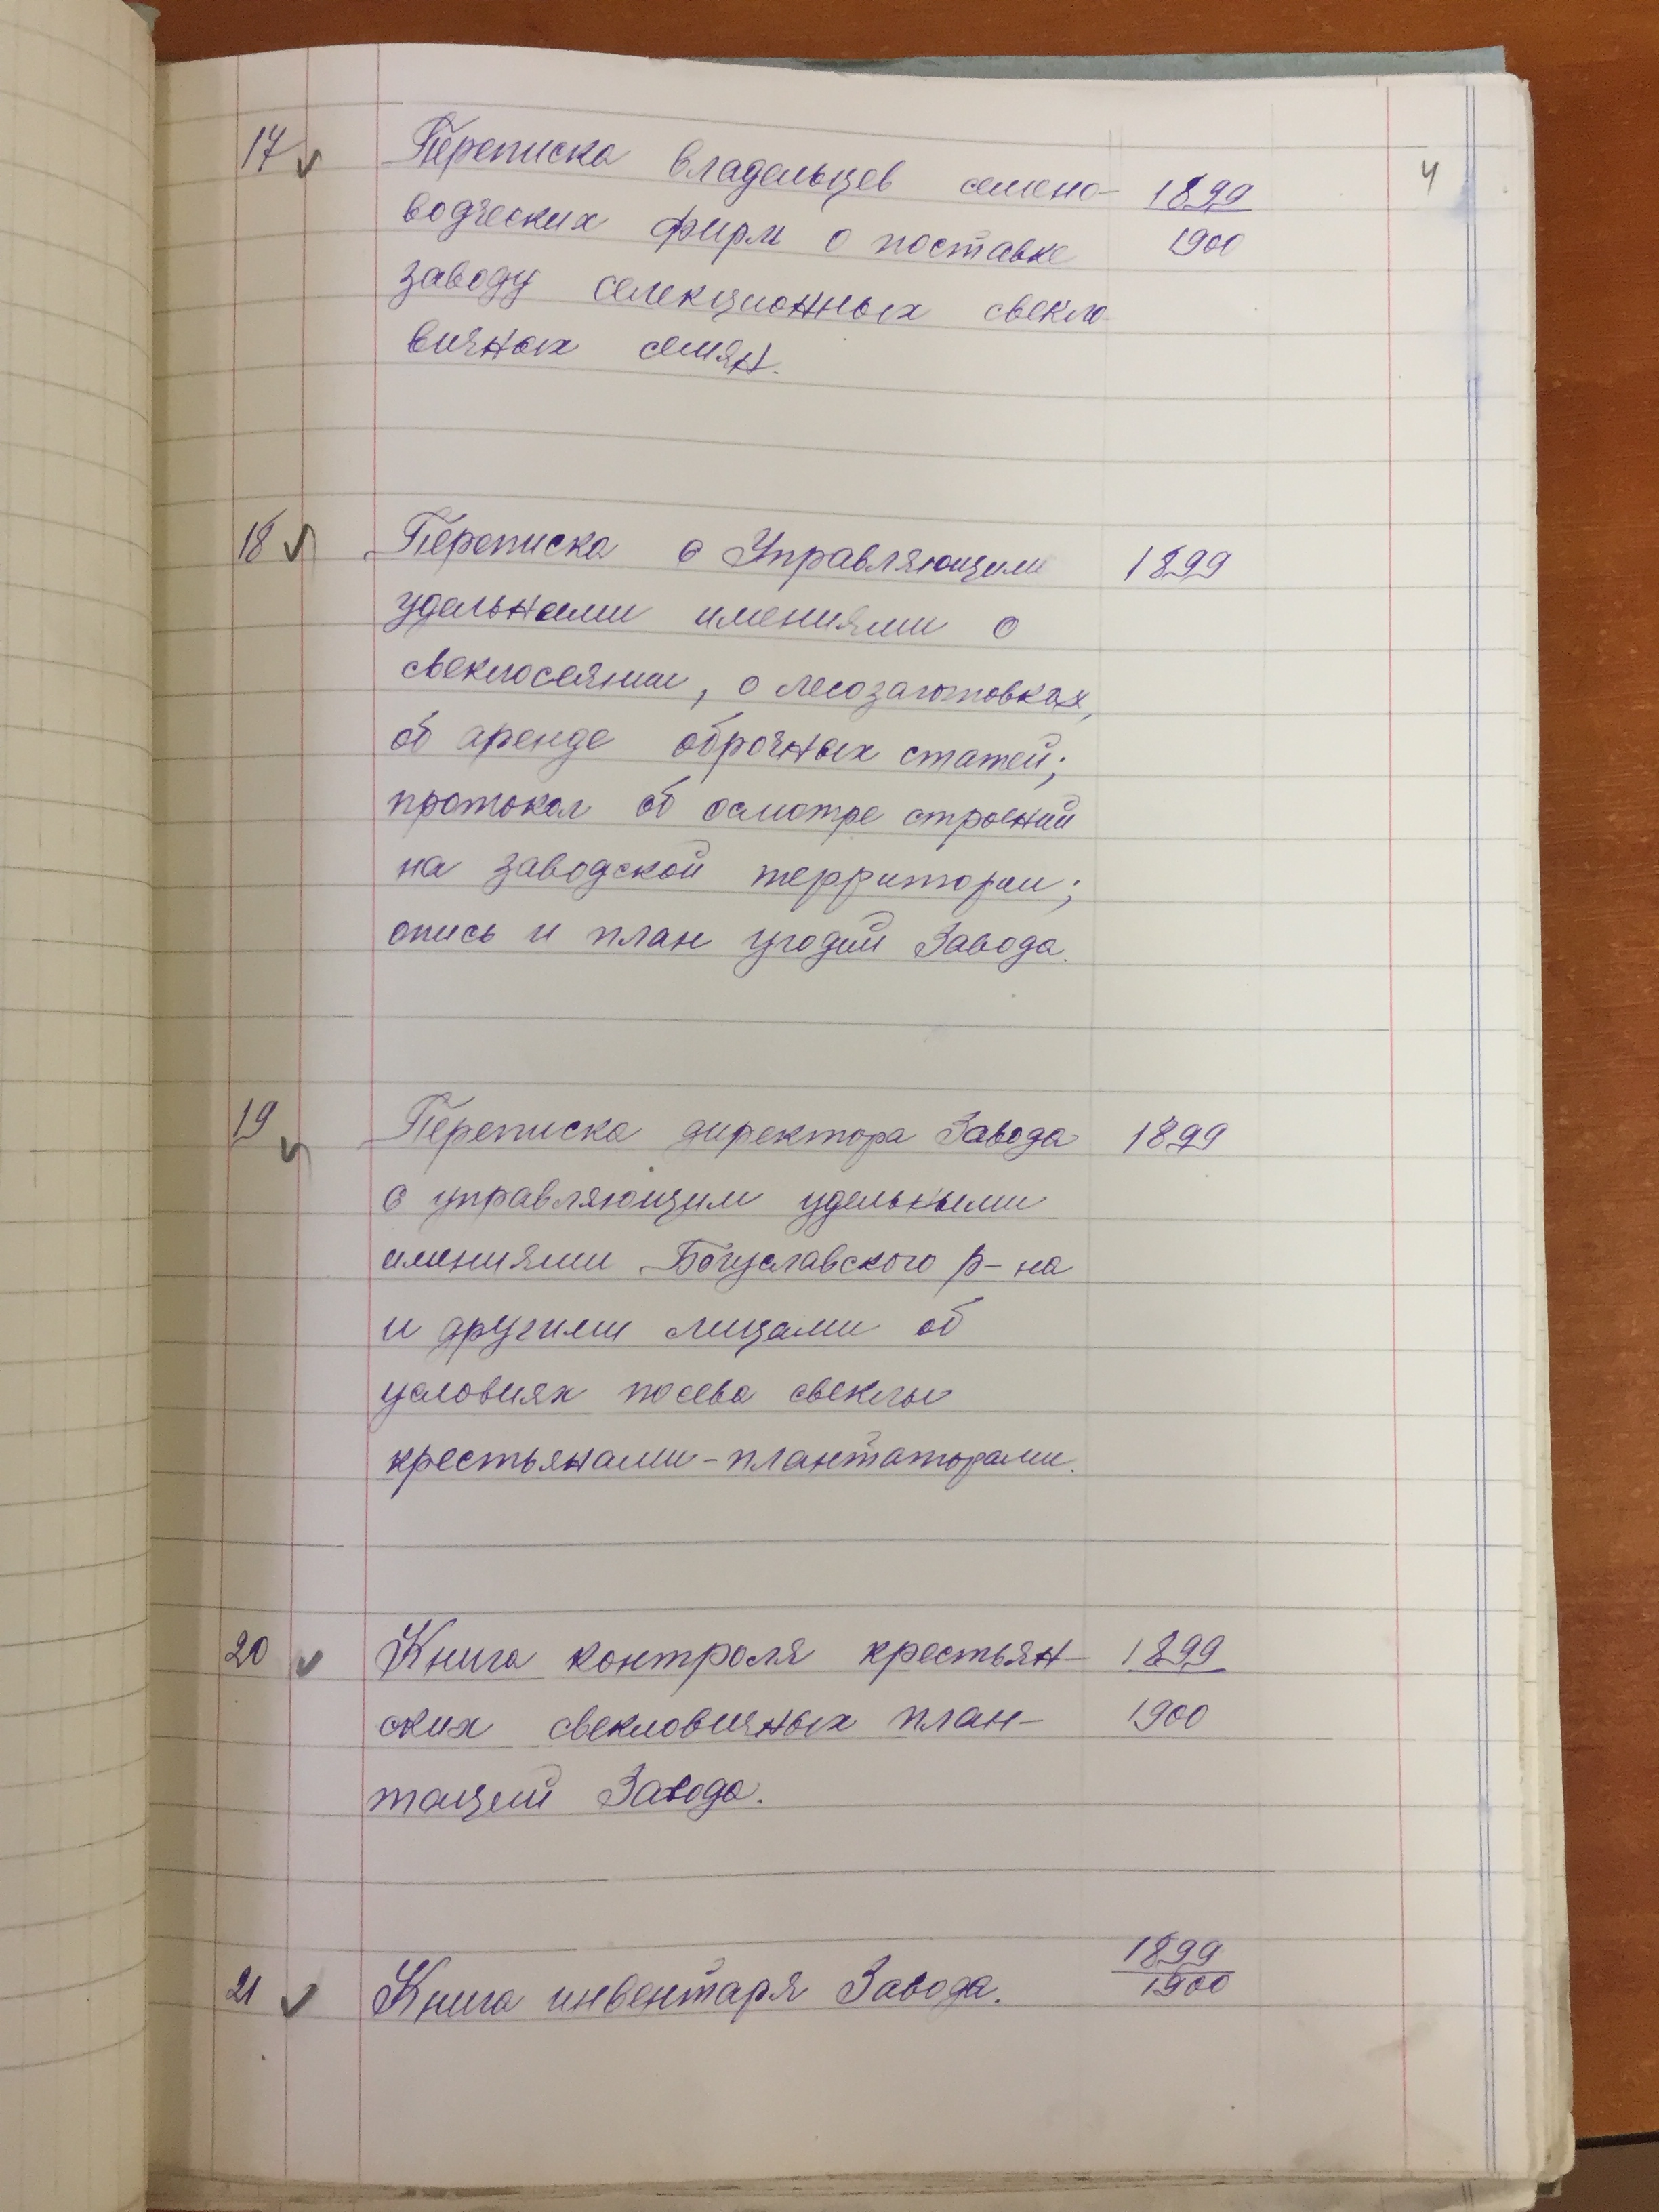 4
17 ✓ Переписка владельцев семено- 1899
водческих фирм о поставке 1900
заводу селекционных свекло-
вичных семян.
18 ✓ Переписка с Управляющими 1899
удельными имениями о
свеклосеянии, о лесозаготовках,
об аренде оброчных статей;
протокол об осмотре строений
на заводской территории;
опись и план угодий Завода.
19 ✓ Переписка директора Завода 1899
с управляющим удельными
имениями Богуславского р-на
и другими лицами об
условиях посева свеклы
крестьянами-плантаторами.
20 ✓ Книга контроля крестьян- 1899
ских свекловичных план- 1900
таций Завода.
21 ✓ Книга инвентаря Завода. 1899
1900